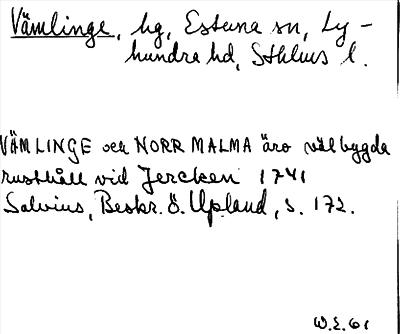 Vämlinge, hg, Estuna sn, Ly-
hundra hd, Sthlms l.
VÄMLINGE och NORRMALMA äro välbygda
rusthåll vid Jercken 1741
Salvius, Beskr. ö. Upland, s. 172.
W.E. 61